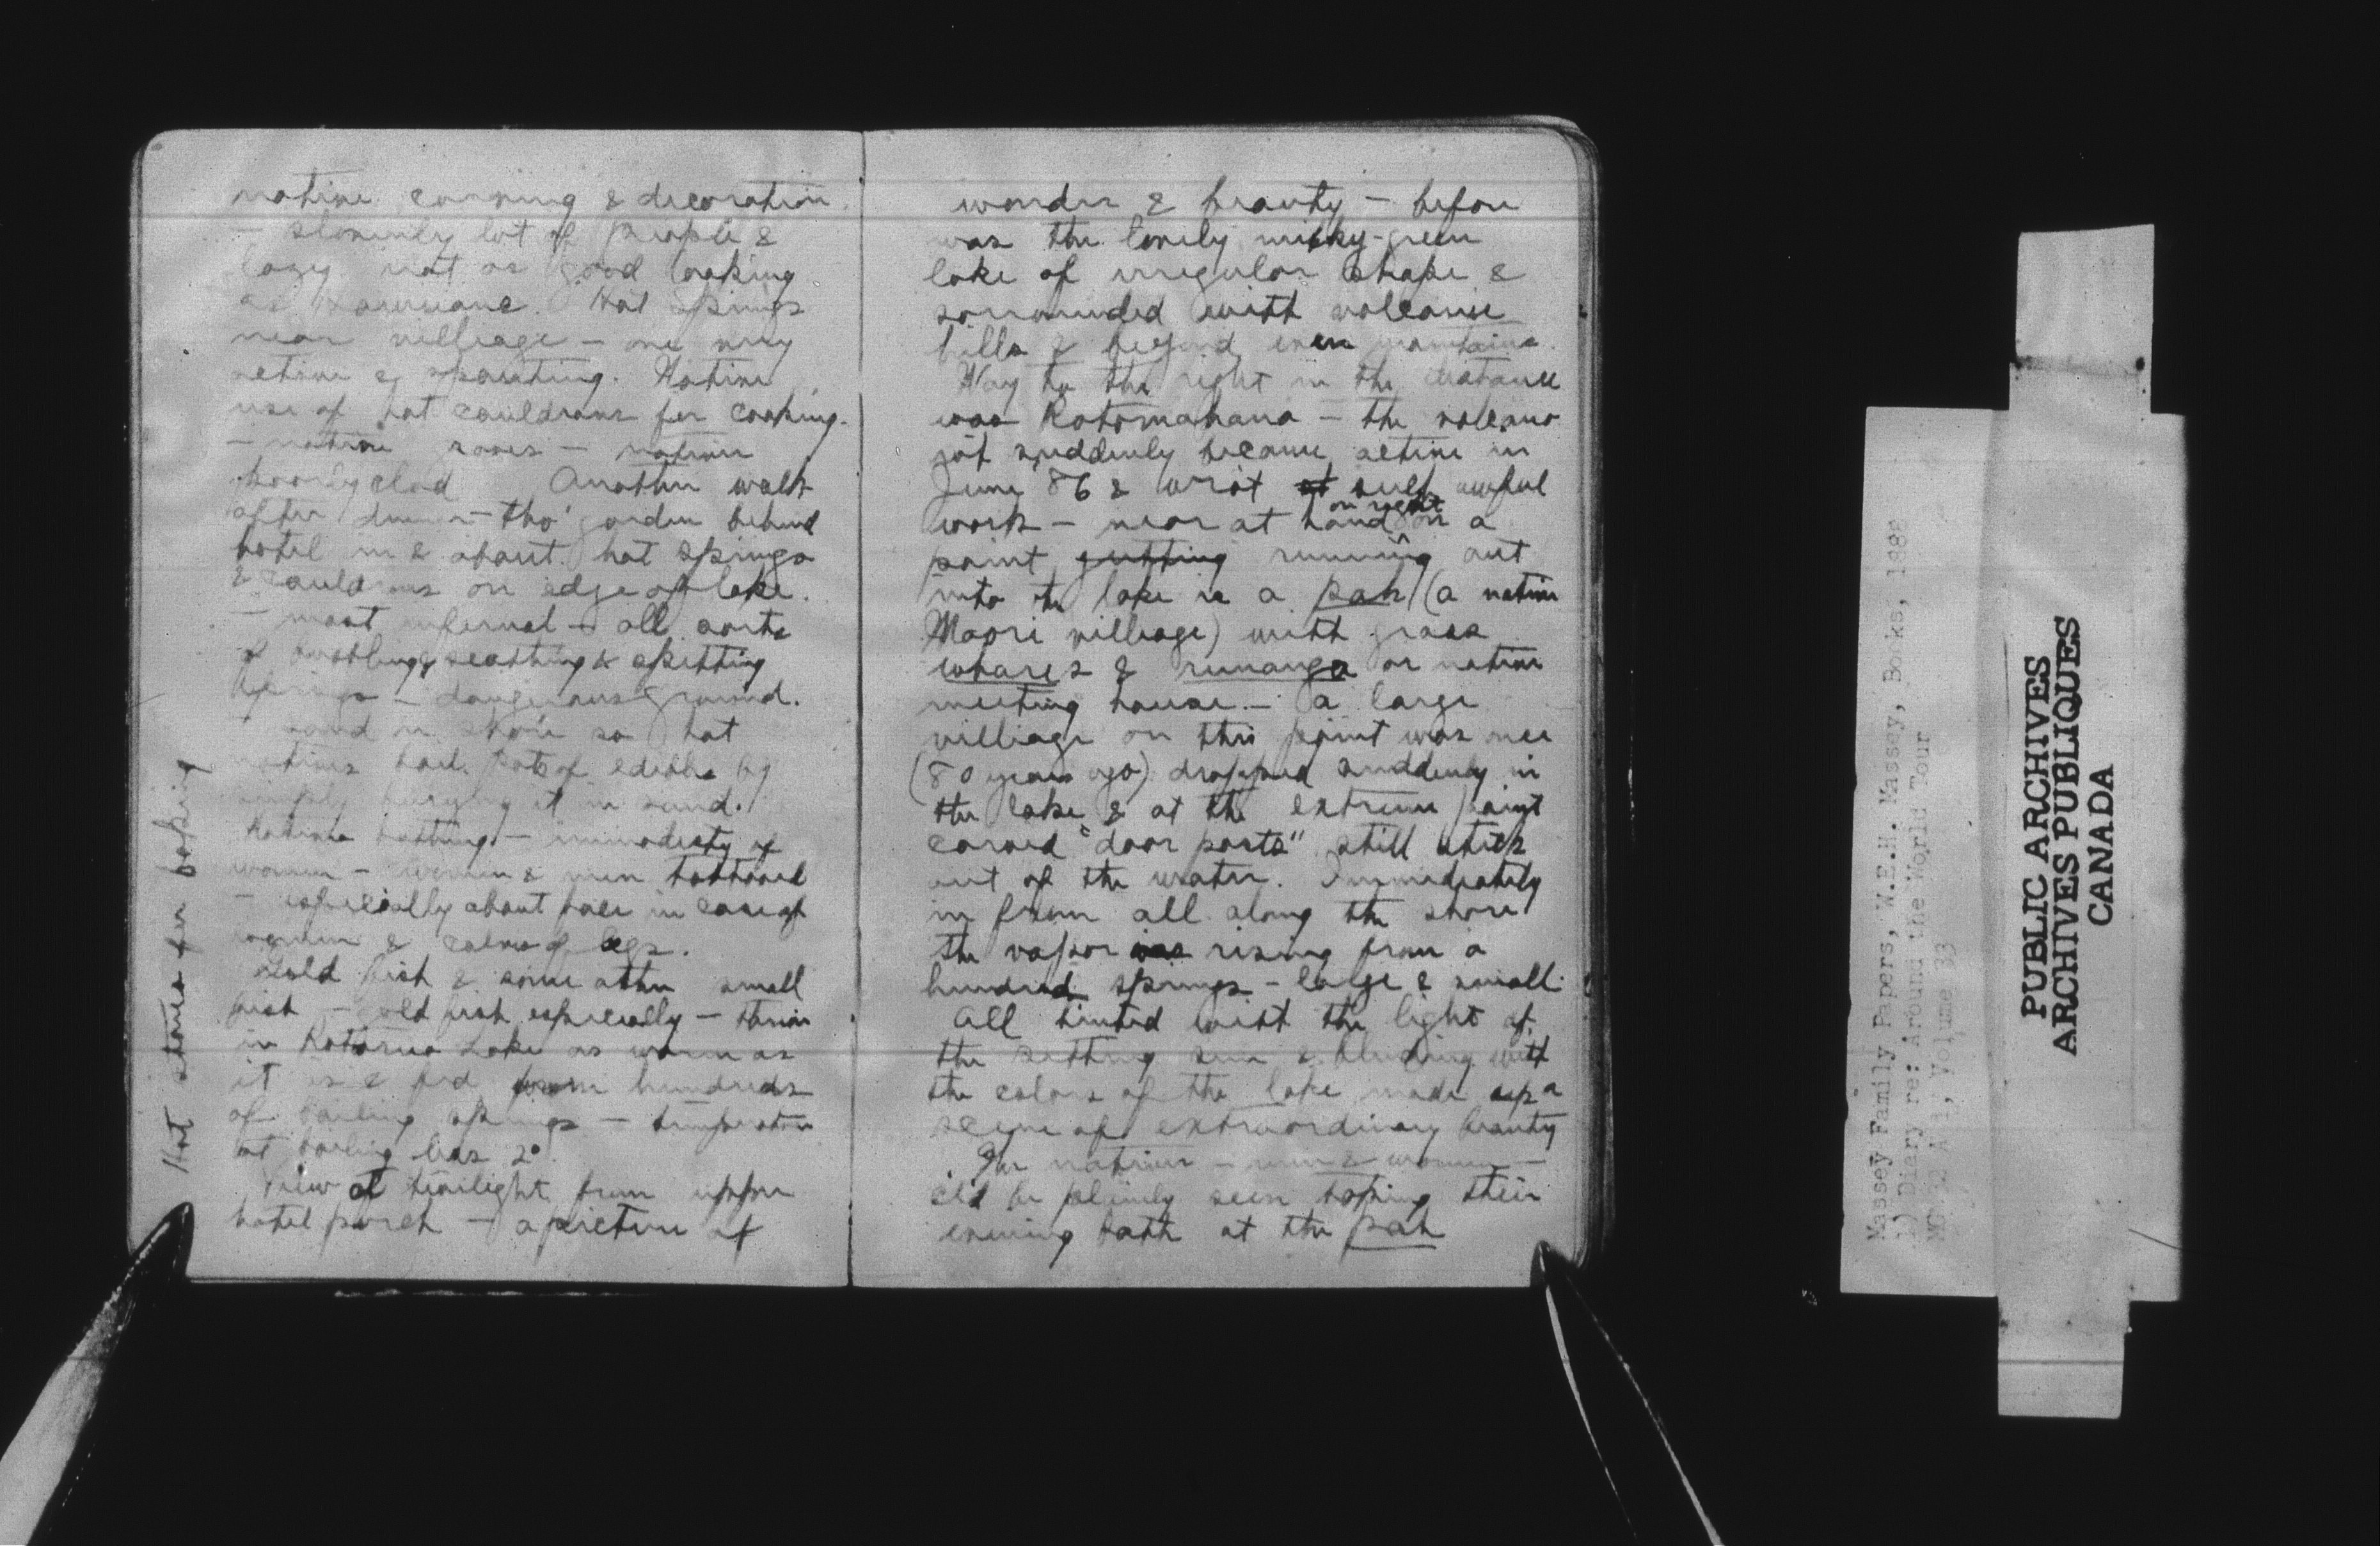 native carving & decoration.
- slovenly lot of people &
lazy not as good looking
as Hawaiians. Hot springs
near villiage - one very
active & spouting. Native
use of hot cauldrons for cooking.
- native - natives
poorly clad Another walk
after dinner - tho' garden behind
hotel in & about hot springs
& cauldrons on edge of lake.
- most infernal - all sorts
of bubbling, seathing & spitting
springs - dangerous ground.
sand on shore so hot
natives boil pots of edibles by
simply burying it in sand.
Natives bathing - immodesty of
women - women & men tattooed
- especially about face in case of
women & calves of legs.
Gold fish & some other small
fish - gold fish especially - thrive
in Rotorua Lake as warm as
it is & fed from hundreds
of boiling springs - temperature
at boiling less 2°
View at twilight from upper
hotel porch - a picture of
Hot stones for baking
wonder & beauty - before
was the lovely milky-green
lake of irregular shape &
sorrounded with volcanic
hills & beyond even mountains.
Way to the right in the distance
was Rotomahana - the volcano
yt suddenly became active in
June '86 & wrot at such awful
work - near at hand on right on a
point jutting running out
into the lake is a pah (a native
Maori villiage) with grass
whares & runanga or native
meeting house - a large
villiage on this point was once
(80 years ago) dropped suddenly in
the lake & at the extreme point
carved "door posts" still stick
out of the water. Immediately
in from all along the shore
the vapor was rising from a
hundred springs - large & small.
All tinted with the light of
the setting sun & blending with
the colors of the lake made up a
scene of extraordinary beauty
The natives - men & women -
cld be plainly seen taking their
evening bath at the pah
Massey Family Papers, W.E.H. Massey, Books, 1888
1) Diary re: Around the World Tour
Volume 33
PUBLIC ARCHIVES
ARCHIVES PUBLIQUES
CANADA